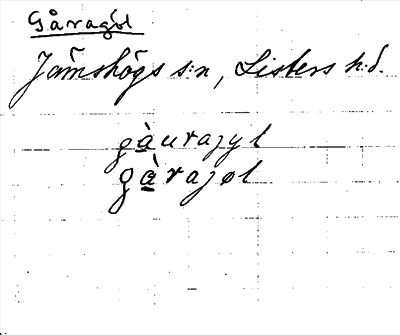 Gåragöl
Jämshögs s:n, Listers h.d.
gàurajyl
gàrajøl